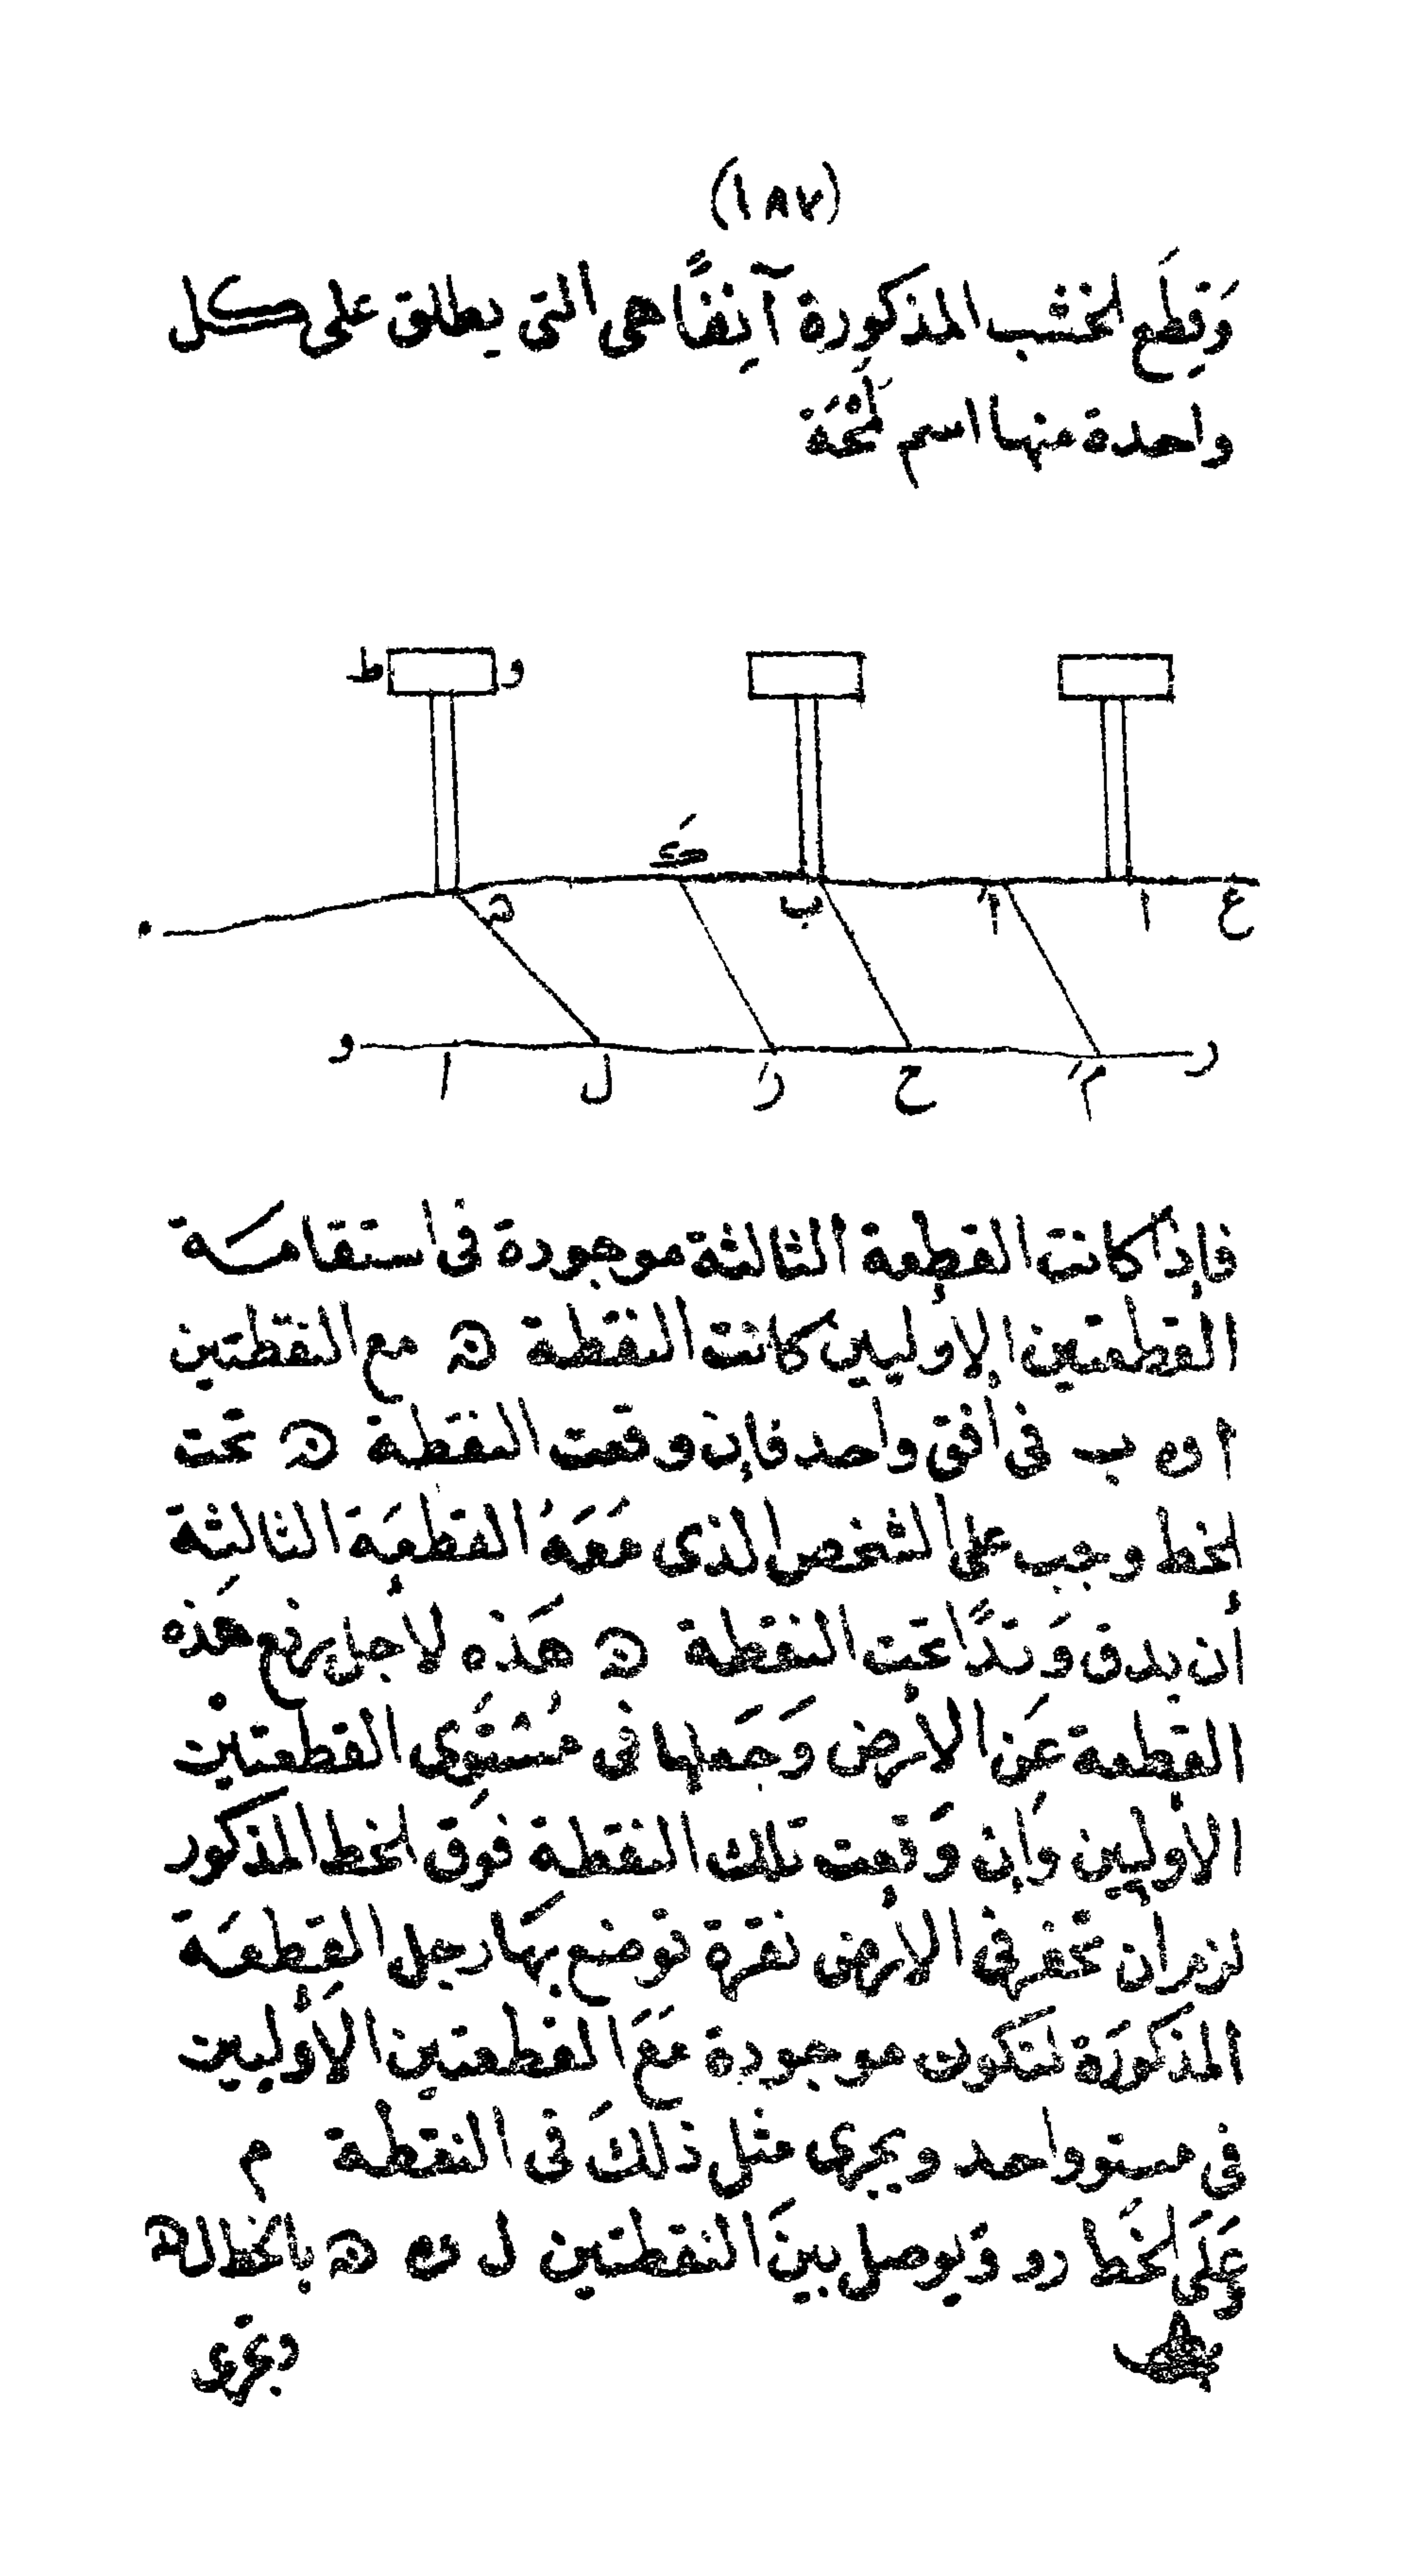 (١٨٧)
وَقِطَع الخشب المذكورة آنِفًا هى التى يطلق على كل
واحدة منها اسم لَمْحَة
ط و
كَ
ه ب أَ ا ع
و ا ل رَ ح مَ ر
فإذا كانت القطعة الثالثة موجودة فى استقامة
القطعتين الأوليين كانت النقطة ه مع النقطتين
أ و ب فى أفق واحد فإن وقعت النقطة ه تحت
الخط وجب على الشخص الذى مَعَهُ القطعَة الثالثة
أن يدق وَتدًا تحت النقطة ه هَذه لأجل رفع هَذه
القطعة عَن الأرض وَجَعلها فى مُسْتَوَى القطعتين
الأوليين وَإن وَقعت تلك النقطة فوق الخط المذكور
لزم أن تحفر فى الأرض نقرة توضع بهَا رجل القِطعَة
المذكورَة لتَكون موجودة مَعَ القطعتين الأوليين
فى مستو واحد ويجرى مثل ذلكَ فى النقطة م
وَعَلَى الخَط رو وَيوصل بينَ النقطتين ل و ه بالخط له
وتجرى